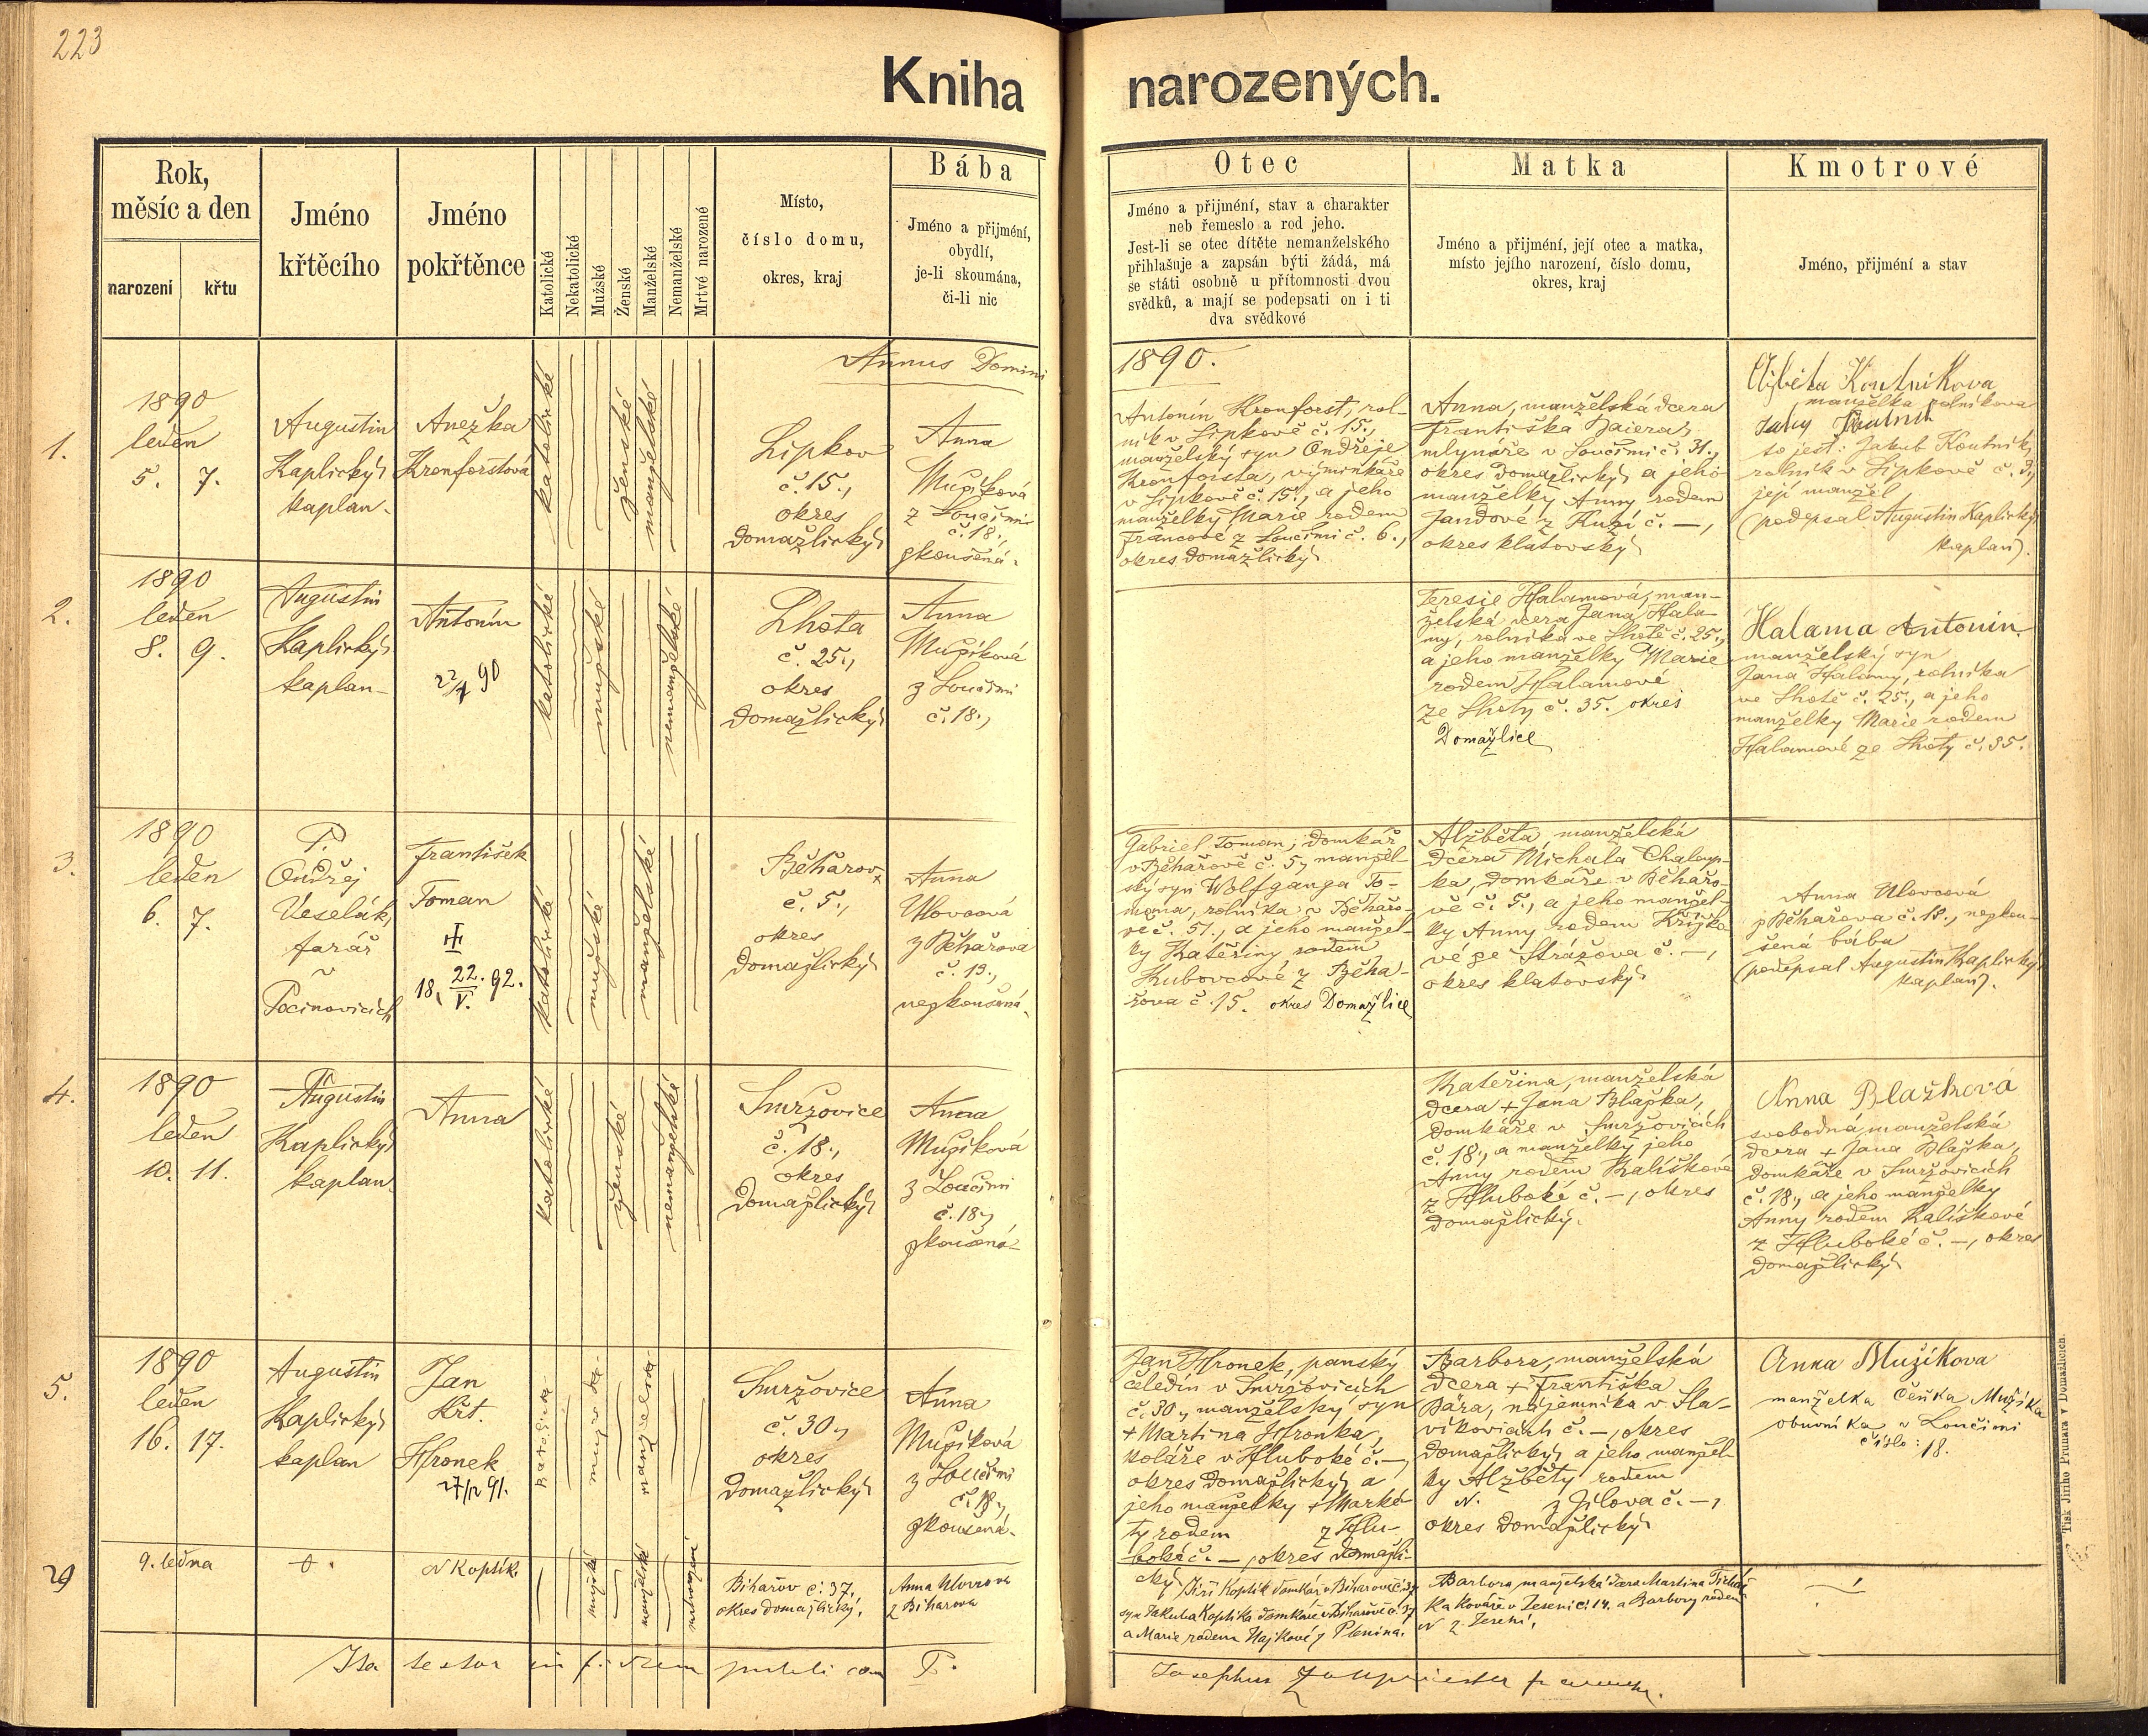 223
Kniha narozených.
Rok,
měsíc a den
narození
křtu
Jméno
křtěcího
Jméno
pokřtěnce
Katolické
Nekatolické
Mužské
Ženské
Manželské
Nemanželské
Mrtvé narozené
Místo,
číslo domu,
okres, kraj
Bába
Jméno a přijmění,
obydlí,
je-li skoumána,
či-li nic
Otec
Jméno a přijmění, stav a charakter
neb řemeslo a rod jeho.
Jest-li se otec dítěte nemanželského
přihlašuje a zapsán býti žádá, má
se státi osobně u přítomnosti dvou
svědků, a mají se podepsati on i ti
dva svědkové
Matka
Jméno a přijmění, její otec a matka,
místo jejího narození, číslo domu,
okres, kraj
Kmotrové
Jméno, přijmění a stav
Annus Domini 1890.
1.
1890
leden
5. 7.
Augustin
Kaplický,
kaplan.
Anežka
Kronforstová
katolické
ženské
manželské
Lipkov
č. 15.,
okres
Domažlický
Anna
Mužíková
z Loučimi
č. 18.,
zkoušená.
Antonín Kronforst, rol-
ník v Lipkově č. 15.,
manželský syn Ondřeje
Kronforsta, výminkáře
v Lipkově č. 15., a jeho
manželky Marie rodem
Francové z Loučimi č. 6.,
okres Domažlický
Anna, manželská dcera
Františka Baiera,
mlynáře v Loučimi č. 31.,
okres Domažlický, a jeho
manželky Anny rodem
Jandové z č. —,
okres klatovský
Eližbeta Koutnikova
manželka rolníkova
to jest: Jakub Koutník,
rolník v Lipkově č. 3,
její manžel
(podepsal Augustin Kaplický,
kaplan).
2.
1890
leden
8. 9.
Augustin
Kaplický,
kaplan
Antonín
katolické
mužské
nemanželské
Lhota
č. 25.,
okres
Domažlický
Anna
Mužíková
z Loučimi
č. 18.,
Teresie Halamová, man-
želská dcera Jana Hala-
my, rolníka ve Lhotě č. 25.,
a jeho manželky Marie
rodem Halamové
ze Lhoty č. 35. okres
Domažlice
Halama Antonín
manželský syn
Jana Halamy, rolníka
ve Lhotě č. 25., a jeho
manželky Marie rodem
Halamové ze Lhoty č. 35.
3.
1890
leden
6. 7.
P.
Ondřej
Veselák,
farář
v
Pocinovicích
František
Toman
18 22. 92.
V.
katolické
mužské
manželské
Běhařov
č. 5.,
okres
Domažlický
Anna
Ulovcová
z Běhařova
č. 19.,
nezkoušená.
Gabriel Toman, domkář
v Běhařově č. 5, manžel-
ský syn Wolfganga To-
mana, rolníka v Běhařo-
vě č. 51., a jeho manžel-
ky Kateřiny rodem
Kubovcové z Běha-
řova č. 15. okres Domažlice
Alžběta, manželská
dcera Michala Chaloup-
ka, domkáře v Běhařo-
vě č. 5., a jeho manžel-
ky Anny rodem Křížko-
vé ze Strážova č. —,
okres klatovský
Anna Ulovcová
z Běhařova č. 19., nezkou-
šená bába
(podepsal Augustin Kaplický,
kaplan).
4.
1890
leden
10. 11.
Augustin
Kaplický,
kaplan
Anna
katolické
ženské
nemanželské
Smržovice
č. 18.,
okres
Domažlický
Anna
Mužíková
z Loučimi
č. 18.,
zkoušená
Kateřina, manželská
dcera + Jana Blažka,
domkáře v Smržovicích
č. 18., a manželky jeho
Anny rodem Kalíškové
z Hluboké č. —, okres
Domažlický.
Anna Blažková
svobodná manželská
dcera + Jana Blažka,
domkáře v Smržovicích
č. 18., a jeho manželky
Anny rodem Kalíškové
z Hluboké č. —, okres
Domažlický
5.
1890
leden
16. 17.
Augustin
Kaplický,
kaplan
Jan
Křt.
Hronek
27/12 91.
Smržovice
č. 30.,
okres
Domažlický
Anna
Mužíková
z Loučimi
č. 18.,
zkoušená.
Jan Hronek, panský
čeledín v Smržovicích
č. 30., manželský syn
+ Martina Hronka,
koláře v Hluboké č. —,
okres Domažlický, a
jeho manželky + Marké-
ty rodem z Hlu-
boké č. —, okres Domažli-
cký
Barbora, manželská
dcera + Františka
Bára, nájemníka v Sla-
víkovicích č. —, okres
Domažlický, a jeho manžel-
ky Alžběty rodem
N. z Jílova č. —,
okres Domažlický
Anna Mužikova
manželka Čeňka Mužíka
obuvníka v Loučimi
číslo: 18.
29
9. ledna
N Koptík.
mužské
manželské
Biharov č. 37.
okres domažlický.
Anna Ulovcova
z Biharova
Jiří Koptík domkář v Biharově č. 37
syn Jakuba Koptíka domkáře v Biharově č. 37
a Marie rodem Hajkové z Plenina.
Barbora manželská dcera Martina
ka kováře v Jeseni č. 14. a Barbory rodem
N z Jeseni.
Ita testor in fidem
P. Josephus
Tisk Jiřího Prunara v Domažlicích.